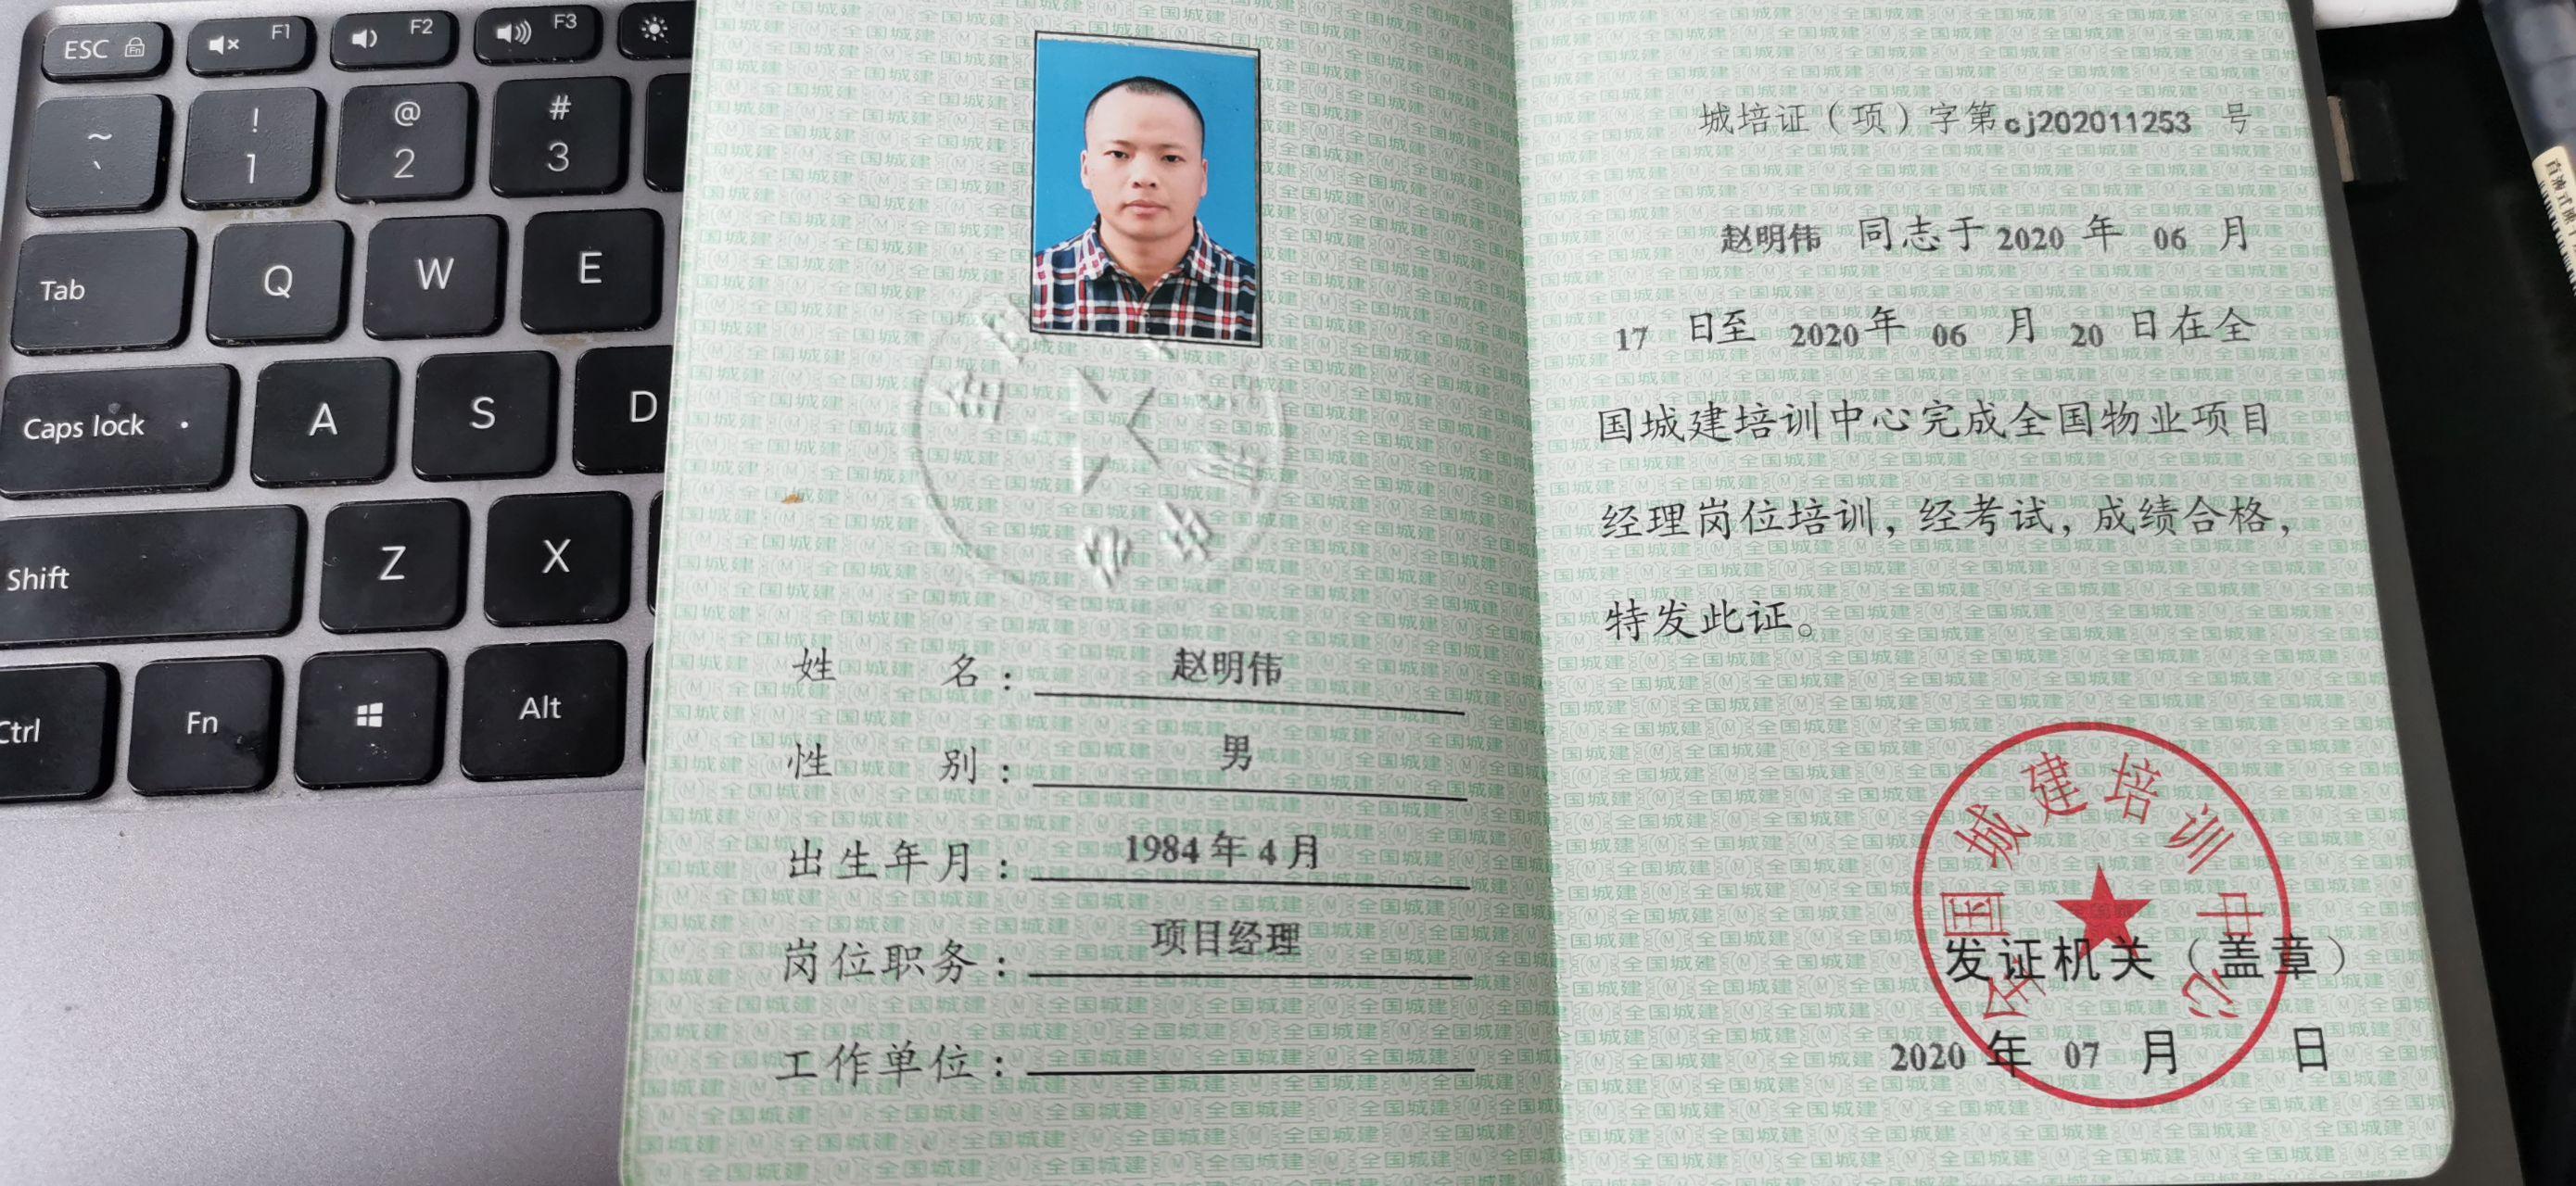 ESC Fn F1 F2 F3
~ ! @ #
` 1 2 3
Tab Q W E
Caps lock A S D
Shift Z X
Ctrl Fn Alt
姓 名： 赵明伟
性 别： 男
出生年月： 1984 年 4 月
岗位职务： 项目经理
工作单位：
城培证（项）字第cj202011253 号
赵明伟 同志于 2020 年 06 月
17 日至 2020 年 06 月 20 日在全
国城建培训中心完成全国物业项目
经理岗位培训，经考试，成绩合格，
特发此证。
全国城建培训中心
发证机关（盖章）
2020 年 07 月 日